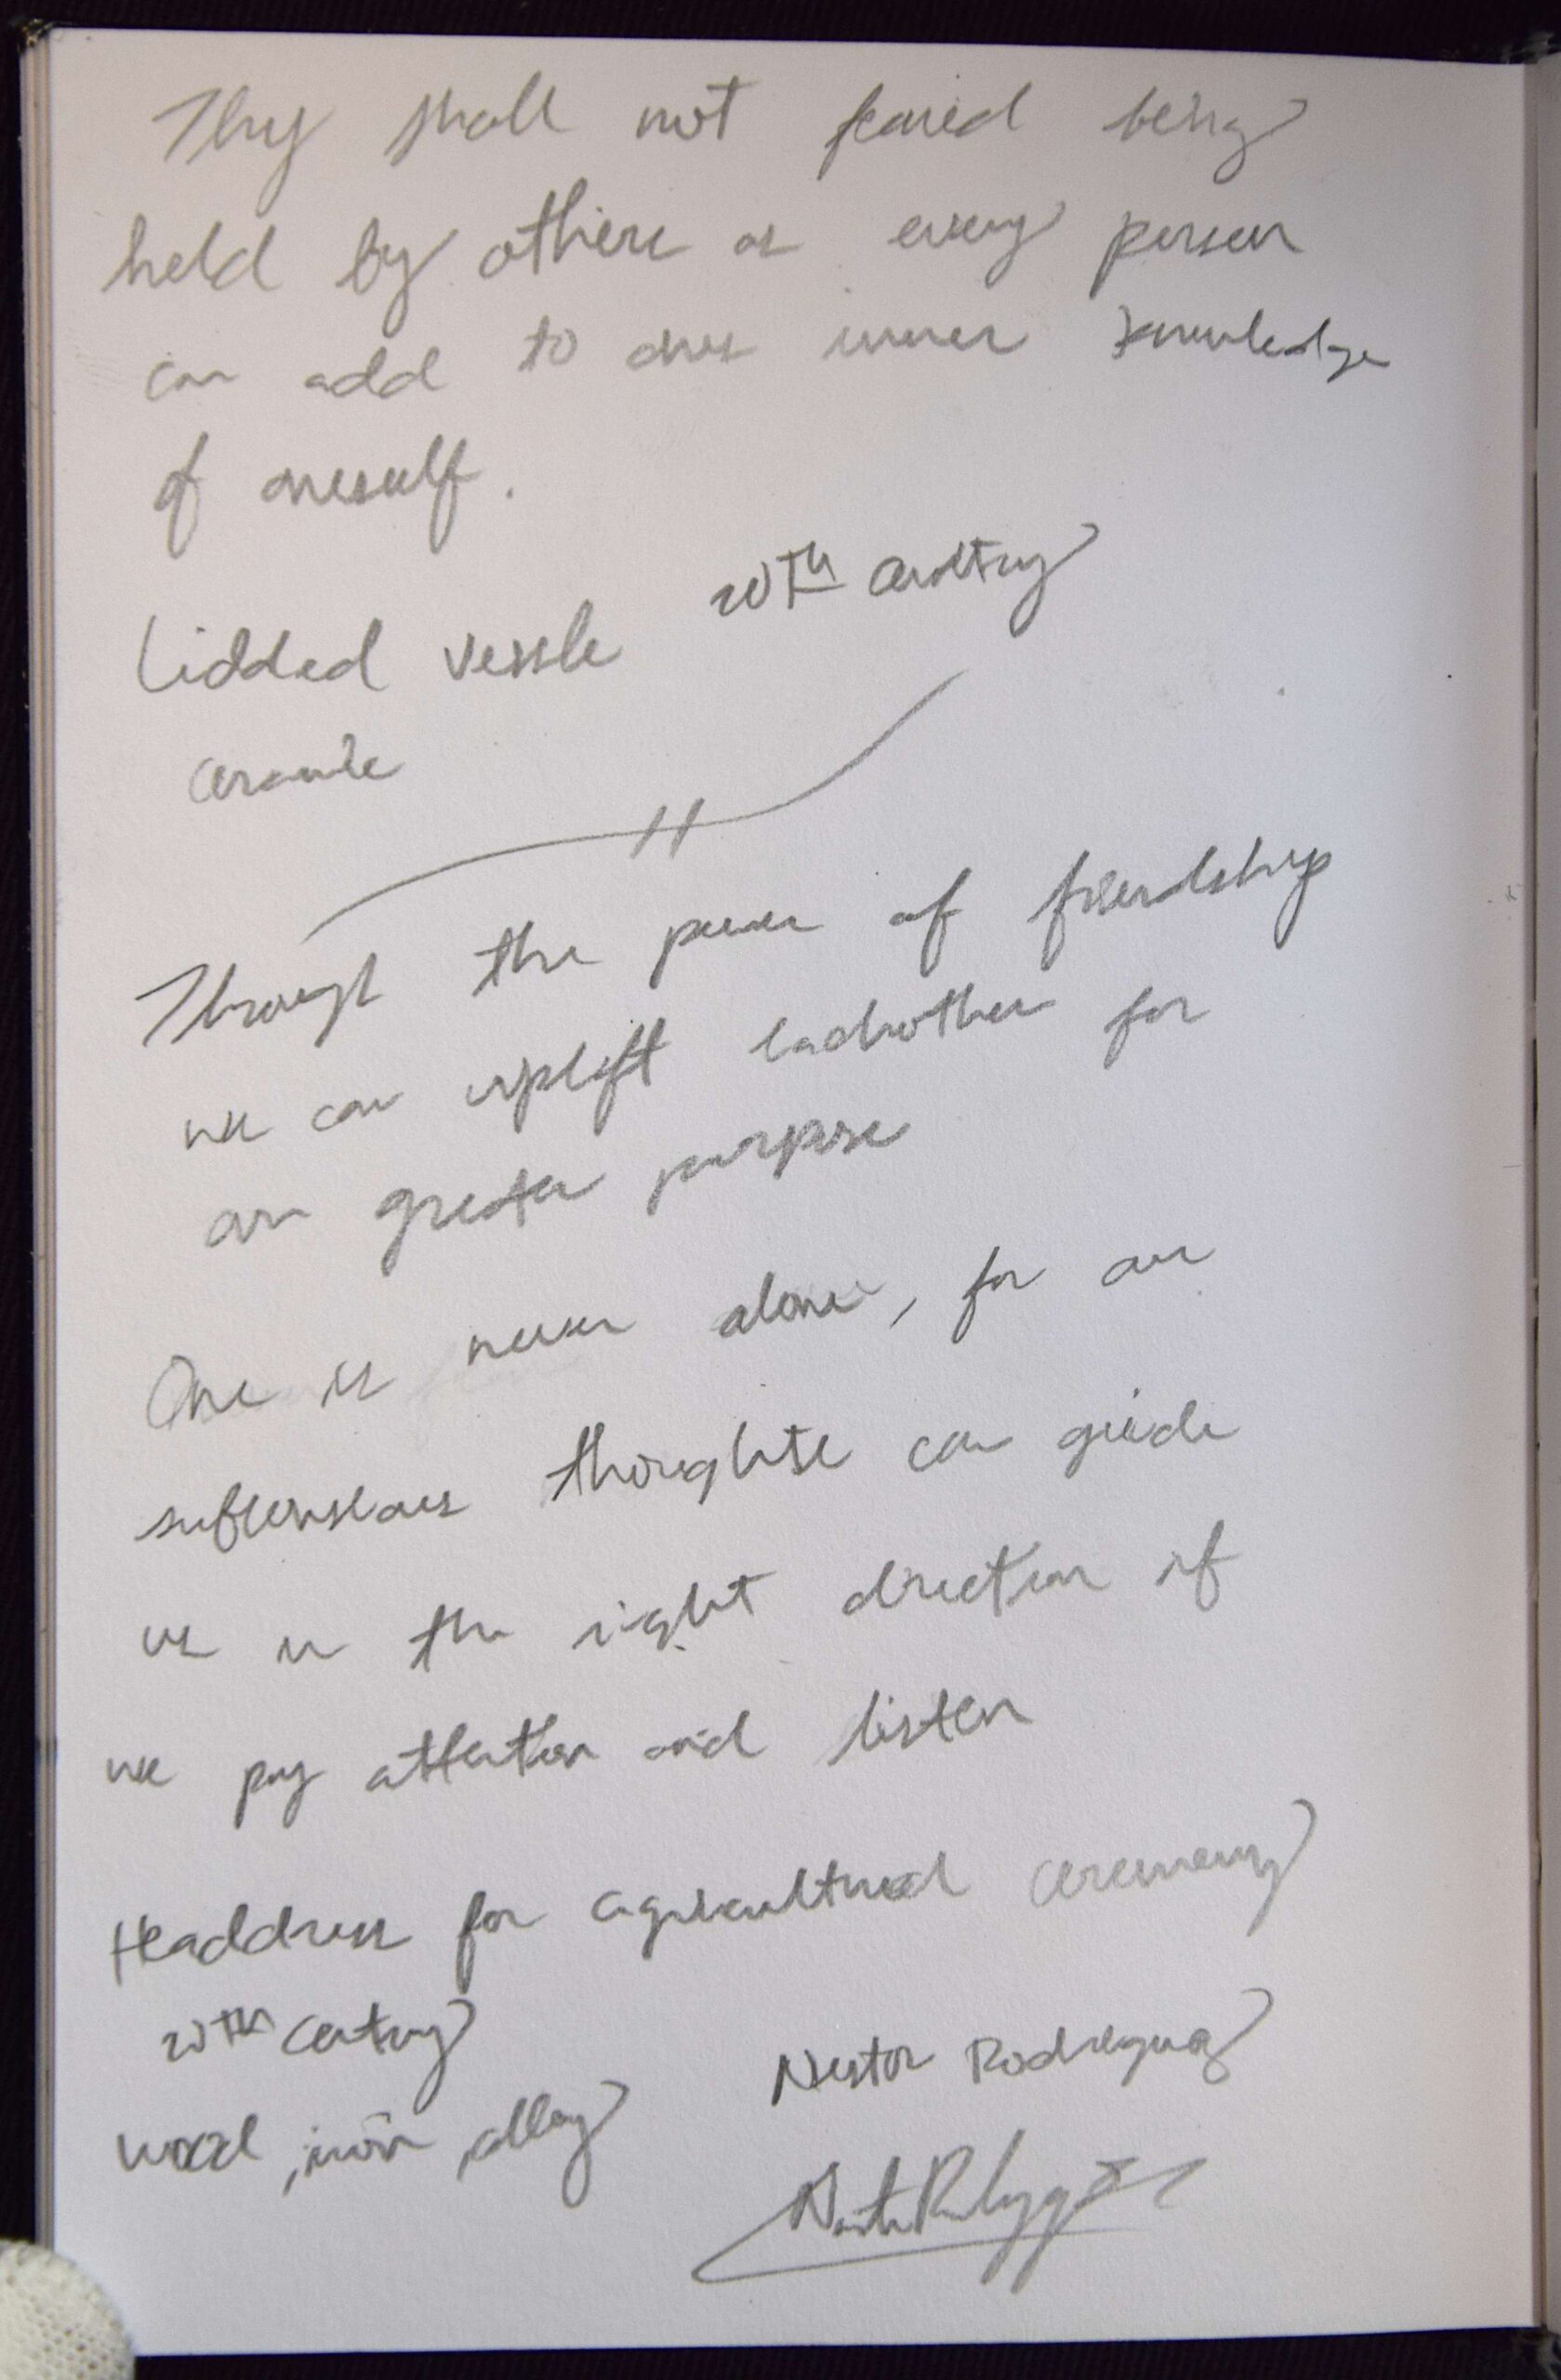 Thy shall not feared being
held by others as every person
can add to ones inner knowledge
of oneself.
20th century
Lidded vessle
ceramic
Through the power of friendship
we can uplift eachother for
an greater purpose
One is never alone, for our
subconscious thoughts can guide
us in the right direction if
we pay attention and listen
Headdress for agricultural ceremony
20th century
wood, iron, alloy
Nestor Rodriguez